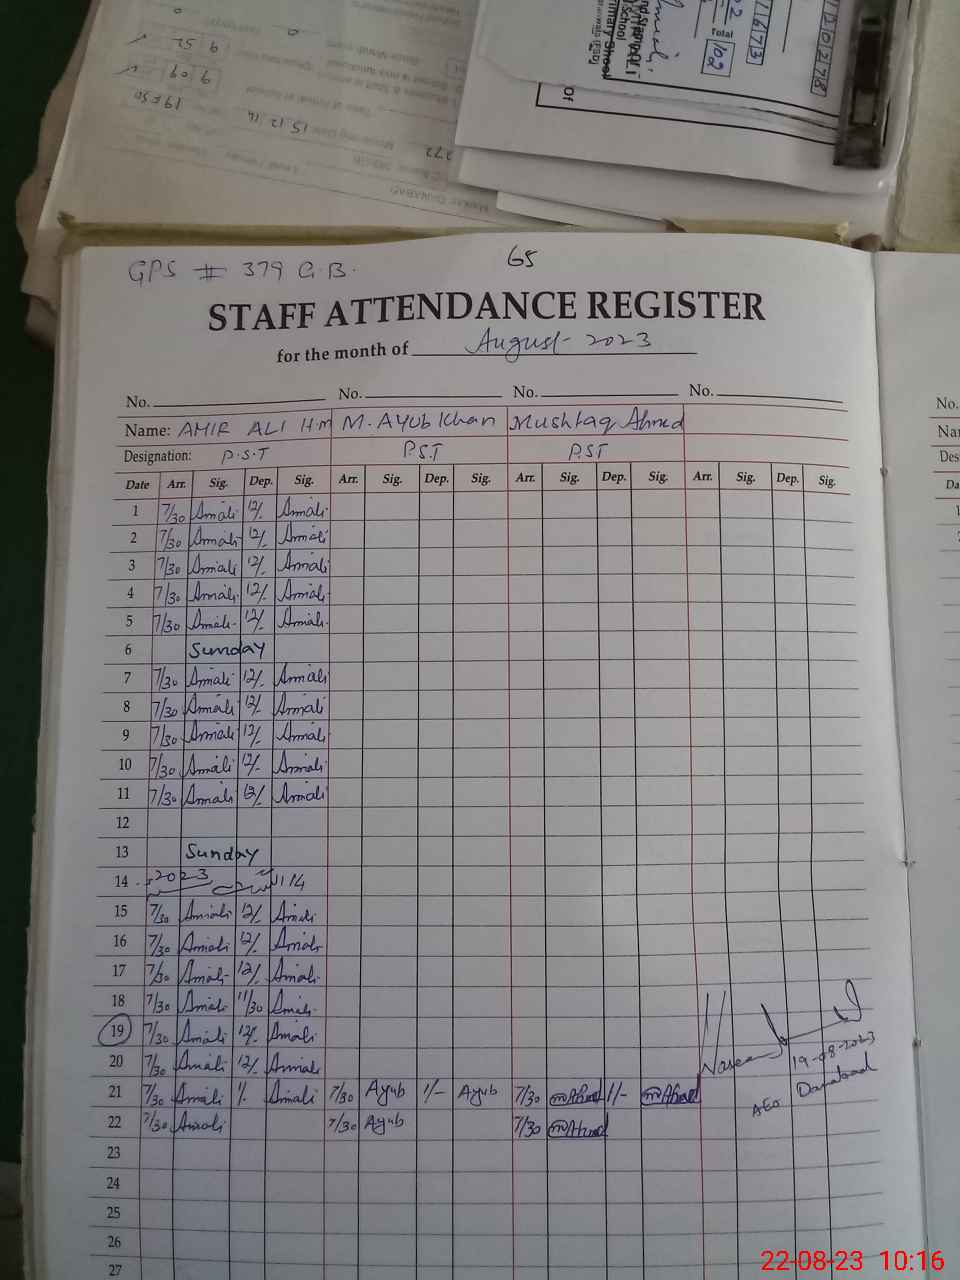 272
15 12 16
19 E 50
9 09
9 52
Total
102
1673
Of
GPS # 379 G.B.
65
STAFF ATTENDANCE REGISTER
for the month of August 2023
No. No. No. No.
Name: AMIR ALI H.m M. AYUb Khan Mushtaq Ahmed
Designation: P.S.T P.S.T P.ST
Date Arr. Sig. Dep. Sig. Arr. Sig. Dep. Sig. Arr. Sig. Dep. Sig. Arr. Sig. Dep. Sig.
1 7/30 Amiali 12/- Amiali
2 7/30 Amiali 12/- Amiali
3 7/30 Amiali 12/- Amiali
4 7/30 Amiali 12/- Amiali
5 7/30 Amiali 12/- Amiali
6 Sunday
7 7/30 Amiali 12/- Amiali
8 7/30 Amiali 12/- Amiali
9 7/30 Amiali 12/- Amiali
10 7/30 Amiali 12/- Amiali
11 7/30 Amiali 12/- Amiali
12
13 Sunday
14 2023 14
15 7/30 Amiali 12/- Amiali
16 7/30 Amiali 12/- Amiali
17 7/30 Amiali 12/- Amiali
18 7/30 Amiali 11/30 Amiali
19 7/30 Amiali 12/- Amiali
20 7/30 Amiali 12/- Amiali
Naseem 19-08-2023
21 7/30 Amiali 1/- Amiali 7/30 Ayub 1/- Ayub 7/30 mAhmed 1/- mAhmed
AEO Danabad
22 7/30 Amiali 7/30 Ayub 7/30 mAhmed
23
24
25
26
27
No.
Des
Da
22-08-23 10:16